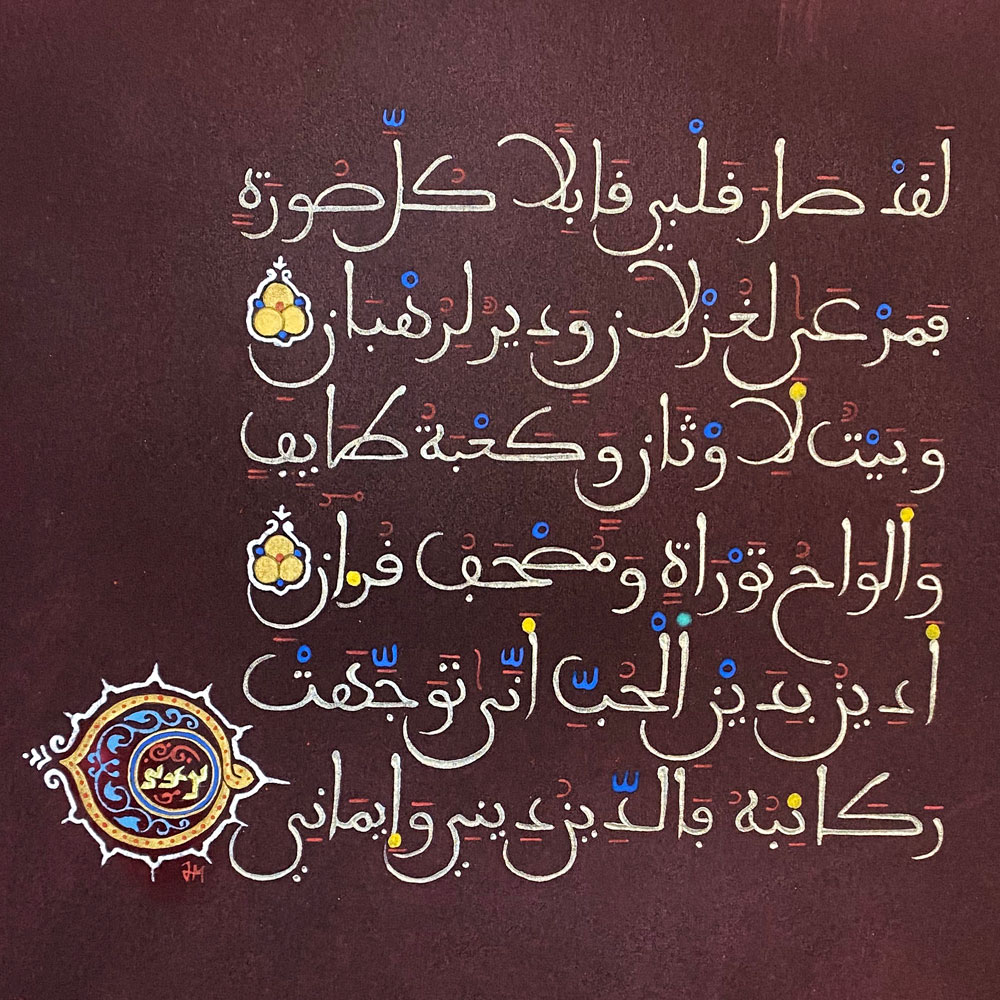 لَقَدْ صَارَ قَلْبِي قَابِلًا كُلَّ صُورَةٍ
فَمَرْعَىٰ لِغُزْلَانٍ وَدِيرٌ لِرُهْبَانِ
وَبَيْتٌ لِأَوْثَانٍ وَكَعْبَةُ طَايِفٍ
وَأَلْوَاحُ تَوْرَاةٍ وَمُصْحَفُ قُرْآنِ
أَدِينُ بِدِينِ الْحُبِّ أَنَّىٰ تَوَجَّهَتْ
رَكَائِبُهُ فَالدِّينُ دِينِي وَإِيمَانِي